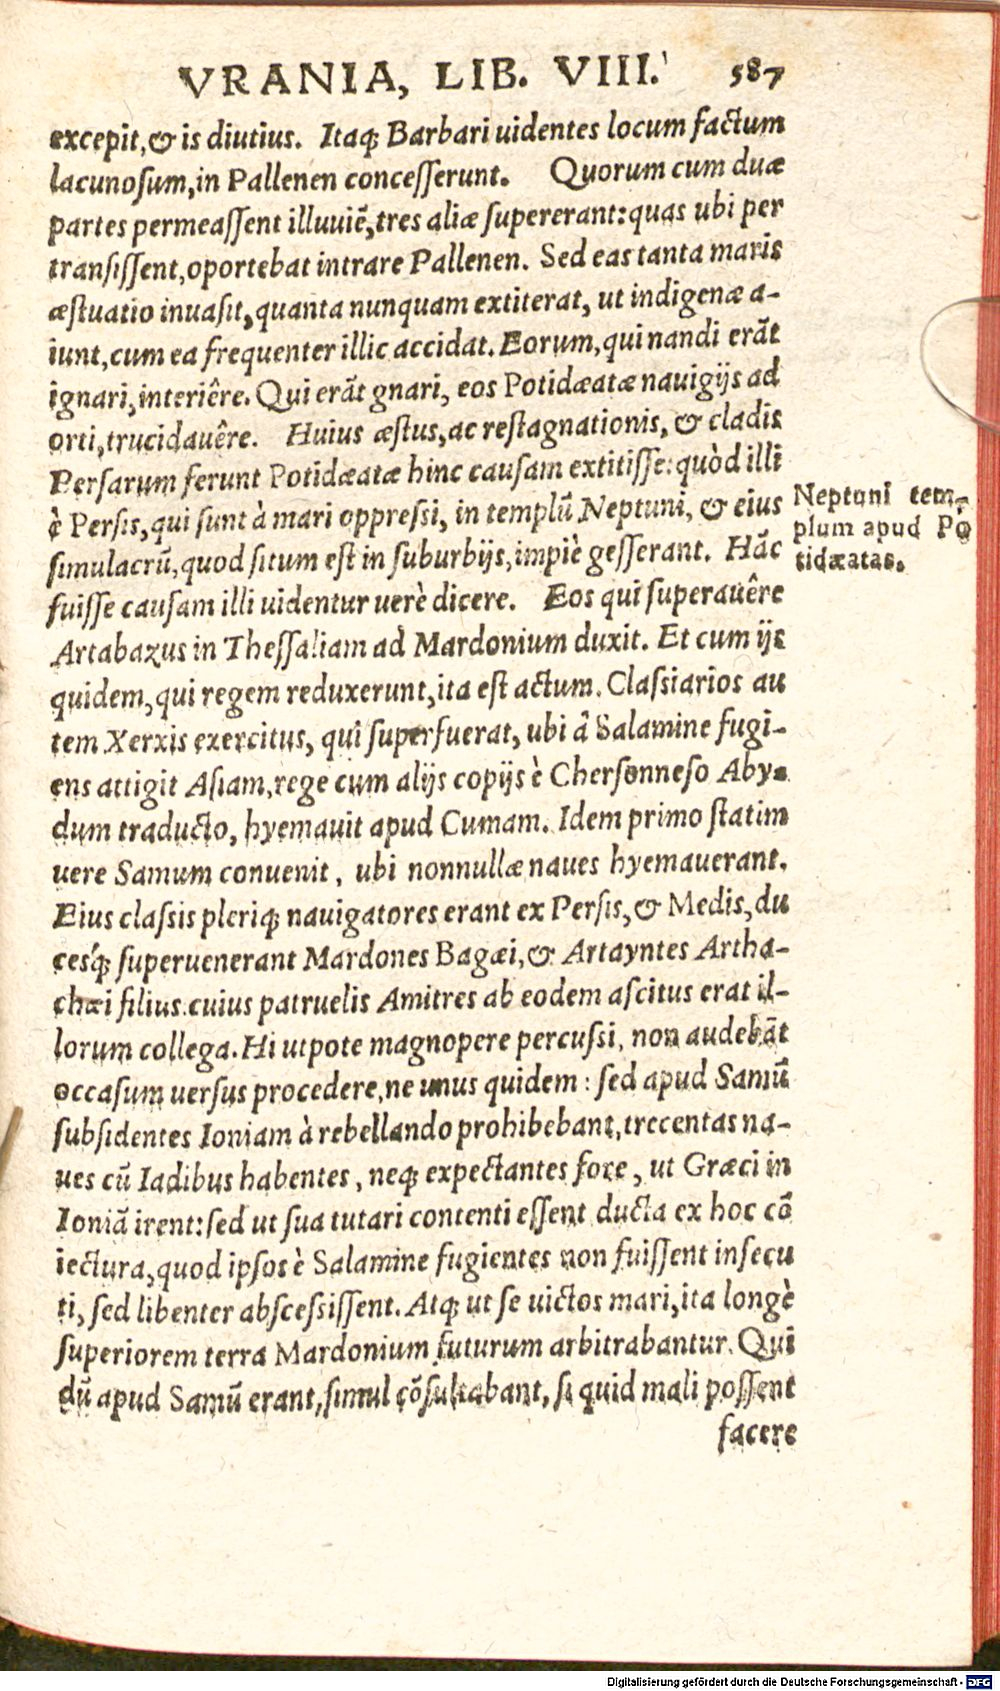 VRANIA, LIB. VIII. 587
excepit, & is diutius. Itaq; Barbari uidentes locum factum
lacunoſum, in Pallenen conceſſerunt. Quorum cum duæ
partes permeaſſent illuuiẽ, tres aliæ ſupererant: quas ubi per
tranſiſſent, oportebat intrare Pallenen. Sed eas tanta maris
æſtuatio inuaſit, quanta nunquam extiterat, ut indigenæ a-
iunt, cum ea frequenter illic accidat. Eorum, qui nandi erãt
ignari, interiêre. Qui erãt gnari, eos Potidæatæ nauigijs ad
orti, trucidauêre. Huius æſtus, ac reſtagnationis, & cladis
Perſarum ferunt Potidæatæ hinc cauſam extitiſſe: quòd illi
è Perſis, qui ſunt à mari oppreſſi, in templũ Neptuni, & eius
ſimulacrũ, quod ſitum eſt in ſuburbijs, impiè geſſerant. Hãc
fuiſſe cauſam illi uidentur uerè dicere. Eos qui ſuperauêre
Artabazus in Theſſaliam ad Mardonium duxit. Et cum ijs
quidem, qui regem reduxerunt, ita eſt actum. Claſſiarios au
tem Xerxis exercitus, qui ſuperfuerat, ubi â Salamine fugi-
ens attigit Aſiam, rege cum alijs copijs è Cherſonneſo Aby-
dum traducto, hyemauit apud Cumam. Idem primo ſtatim
uere Samum conuenit, ubi nonnullæ naues hyemauerant.
Eius claſſis pleriq; nauigatores erant ex Perſis, & Medis, du
ceśq; ſuperuenerant Mardones Bagæi, & Artayntes Artha-
chæi filius. cuius patruelis Amitres ab eodem aſcitus erat il-
lorum collega. Hi utpote magnopere percuſſi, non audebãt
occaſum uerſus procedere, ne unus quidem: ſed apud Samũ
ſubſidentes Ioniam à rebellando prohibebant, trecentas na-
ues cũ Iadibus habentes, neq; expectantes fore, ut Græci in
Ioniã irent: ſed ut ſua tutari contenti eſſent ducta ex hoc cõ
iectura, quod ipſos è Salamine fugientes non fuiſſent inſecu
ti, ſed libenter abſceſſiſſent. Atq; ut ſe uictos mari, ita longè
ſuperiorem terra Mardonium futurum arbitrabantur. Qui
dũ apud Samũ erant, ſimul cõſultabant, ſi quid mali poſſent
facere
Neptuni tem-
plum apud Po
tidæatas.
Digitalisierung gefördert durch die Deutsche Forschungsgemeinschaft - DFG